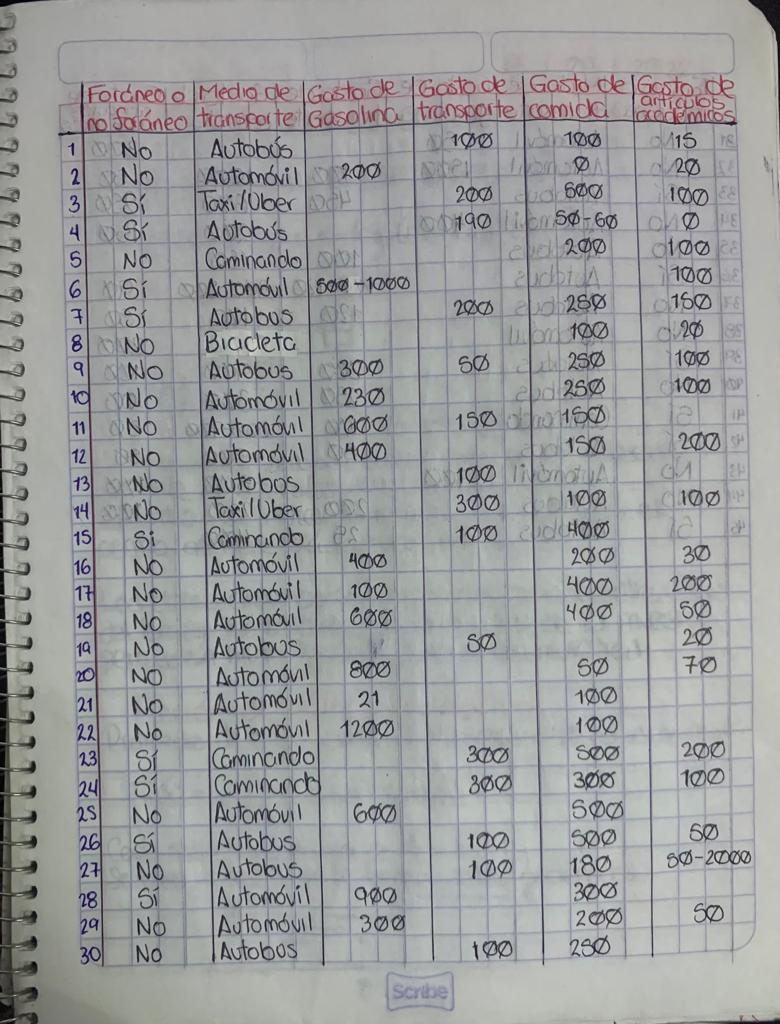 Foráneo o Medio de Gasto de Gasto de Gasto de Gasto de
no foráneo transporte Gasolina transporte comida artículos académicos
1 No Autobús 100 100 15
2 No Automóvil 200 0 20
3 Sí Taxi/Uber 200 600 100
4 Sí Autobús 190 50-60 0
5 No Caminando 200 100
6 Sí Automóvil 800-1000 100
7 Sí Autobus 200 250 150
8 No Bicicleta 100 20
9 No Autobus 300 50 250 100
10 No Automóvil 230 250 100
11 No Automóvil 600 150 150
12 No Automóvil 400 150 200
13 No Autobos 100
14 No Taxi/Uber 300 100 100
15 Sí Caminando 100 400
16 No Automóvil 400 200 30
17 No Automóvil 100 400 200
18 No Automóvil 600 400 50
19 No Autobus 50 20
20 No Automóvil 800 50 70
21 No Automóvil 21 100
22 No Automóvil 1200 100
23 Sí Caminando 300 500 200
24 Sí Caminando 300 300 100
25 No Automóvil 600 500
26 Sí Autobus 100 500 50
27 No Autobus 100 180 50-2000
28 Sí Automóvil 900 300
29 No Automóvil 300 200 50
30 No Autobos 100 250
Scribe